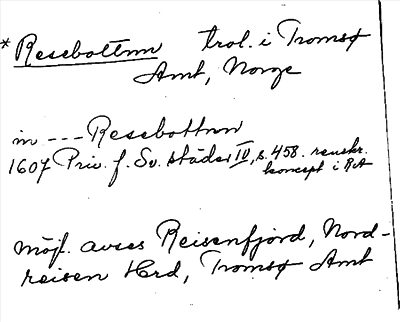 * Resebottnn trol. i Tromsø
Amt, Norge
in --- Resebottnn
1607 Priv. f. Sv. städer IV, s. 458. renskr.
koncept i RA
möjl. avses Reisenfjord, Nord-
reisen Hrd, Tromsø Amt